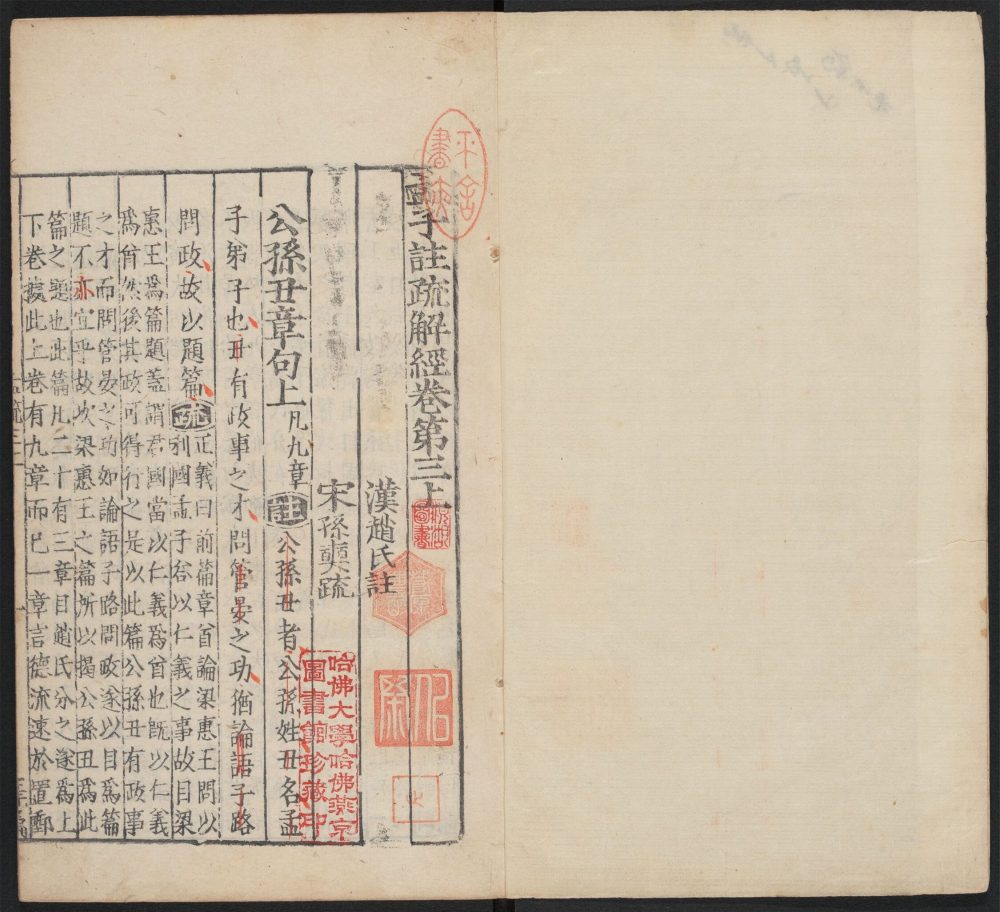 孟子註疏解經卷第三上
漢趙氏註
宋孫奭疏
公孫丑章句上 凡九章 註 公孫丑者公孫姓丑名孟
子弟子也丑有政事之才問管晏之功猶論語子路
問政故以題篇 疏 正義曰前篇章首論梁惠王問以
利國孟子答以仁義之事故目梁
惠王爲篇題蓋謂君國當以仁義爲首也旣以仁義
爲首然後其政可得行之是以此篇公孫丑有政事
之才而問管晏之功如論語子路問政遂以目爲篇
題不亦宜乎故次梁惠王之篇所以揭公孫丑爲此
篇之題也此篇凡二十有三章目趙氏分之遂爲上
下卷據此上卷有九章而已一章言德流速於置郵
哈佛大學哈佛燕京
圖書館珍藏印